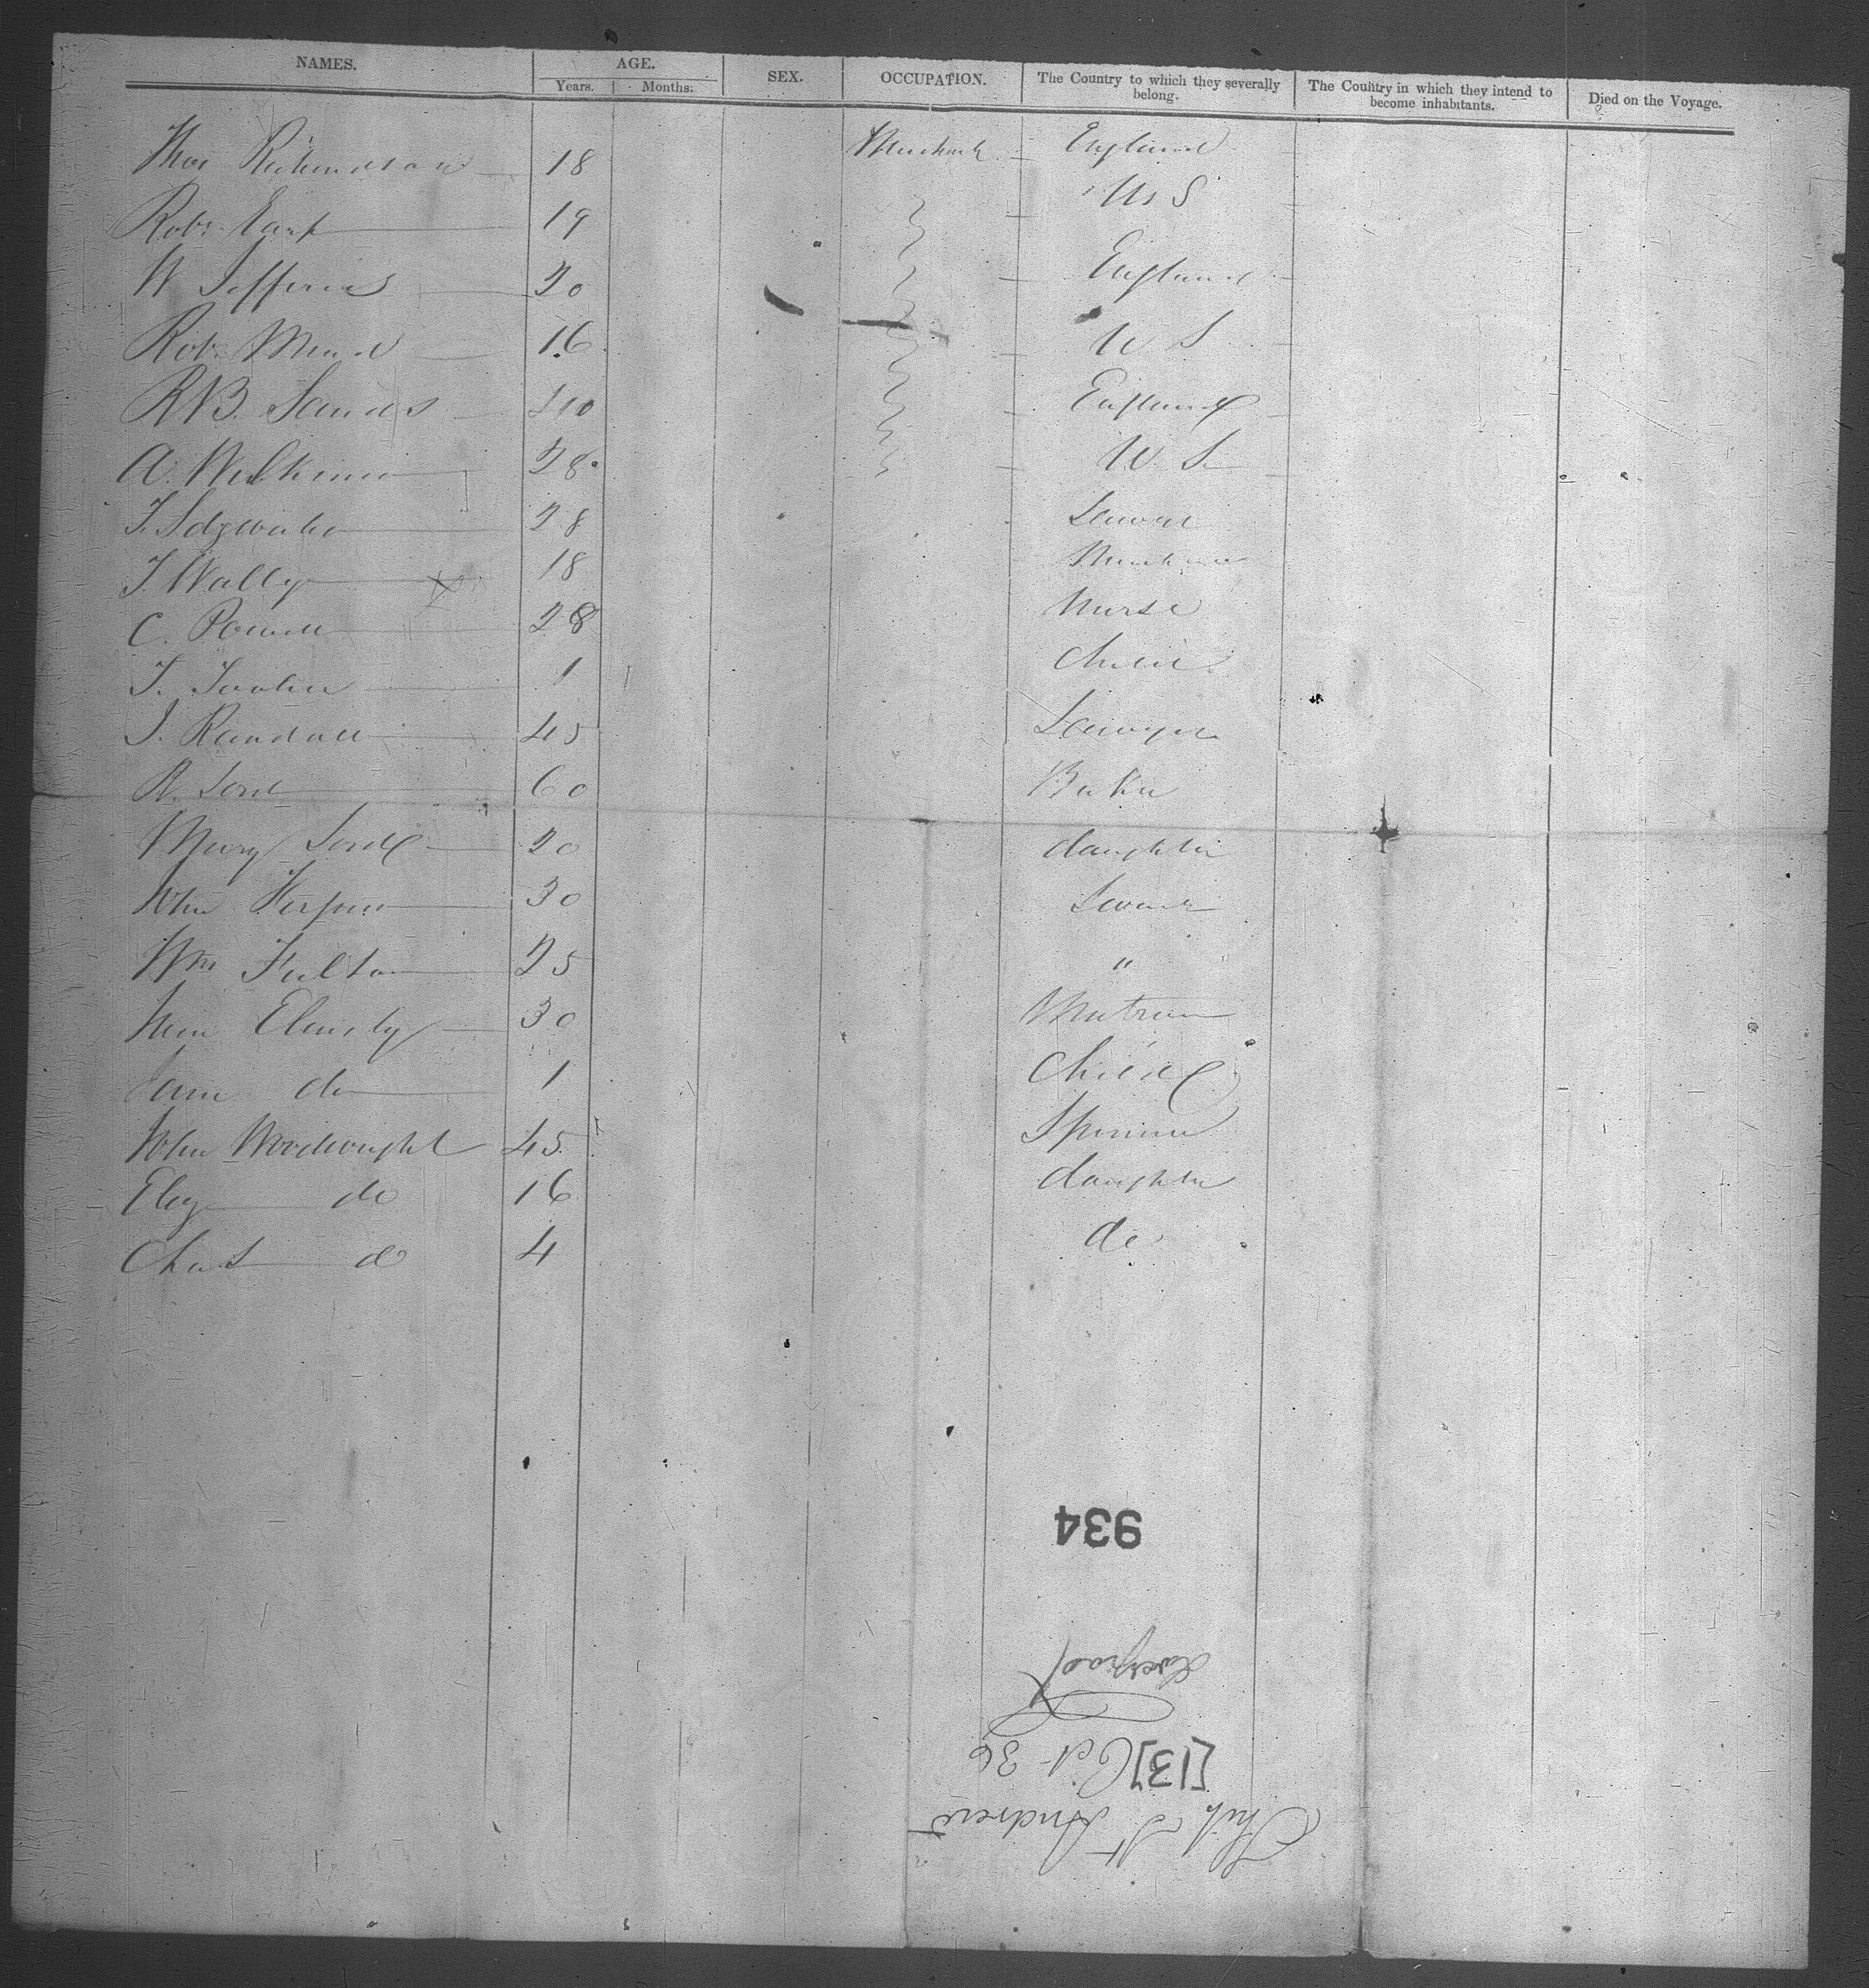 NAMES. AGE. SEX. OCCUPATION. The Country to which they severally belong. The Country in which they intend to become inhabitants. Died on the Voyage.
Years. Months.
Thos Richardson 18 Merchant England
Robt Earp 19 U S
W Jefferies 20 England
Robt 16 U S
R B. Sands 40 England
A. Wilkinson 28 U. S
T. 28
T. Wally 18
C. Powell 28 Nurse
T. 1 Child
J. Randall 45 Sawyer
R. Lord 60 Baker
Mary Lord 20 daughter
John 30
Wm Fulton 25 "
30 Matron
do 1 Child
John Woodwright 45 Spinner
do 16 daughter
Chas do 4 do
934
Liverpool
[13] Oct 30
Ship St Andrew